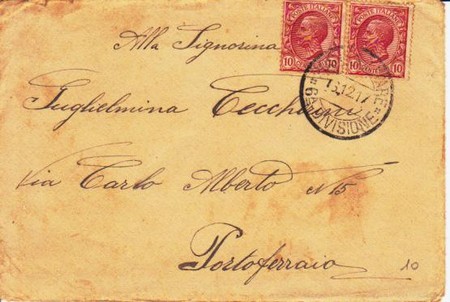 POSTE ITALIANE POSTE ITALIANE
10 CENT. 10 10
Alla Signorina
13.12.17
6A DIVISIONE
Guglielmina Cecchini
Via Carlo Alberto N 15
Portoferraio
10